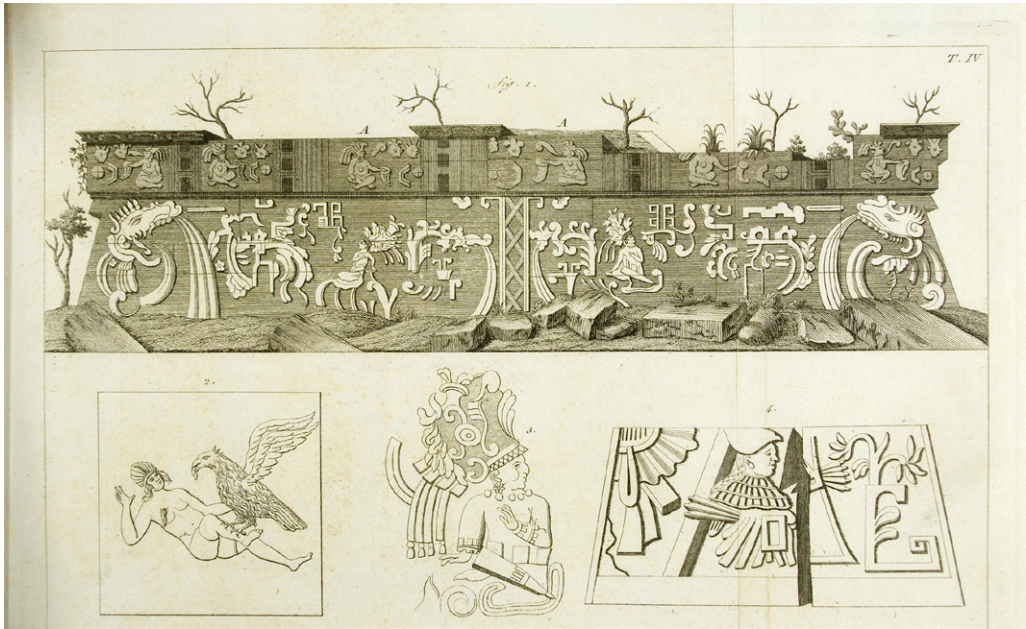 T. IV
fig. 1.
A
A
2.
3.
4.